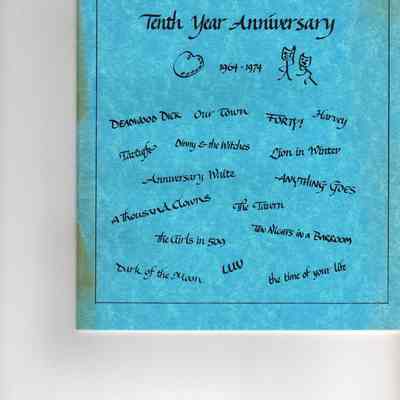 Tenth Year Anniversary
1964-1974
DEADWOOD DICK Our Town FORTY! Harvey
Tartuffe Dinny & the Witches Lion in Winter
Anniversary Waltz ANYTHING GOES
A Thousand Clowns The Tavern
The Girls in 509 Ten Nights in a BARROOM
Dark of the Moon LUV the time of your life